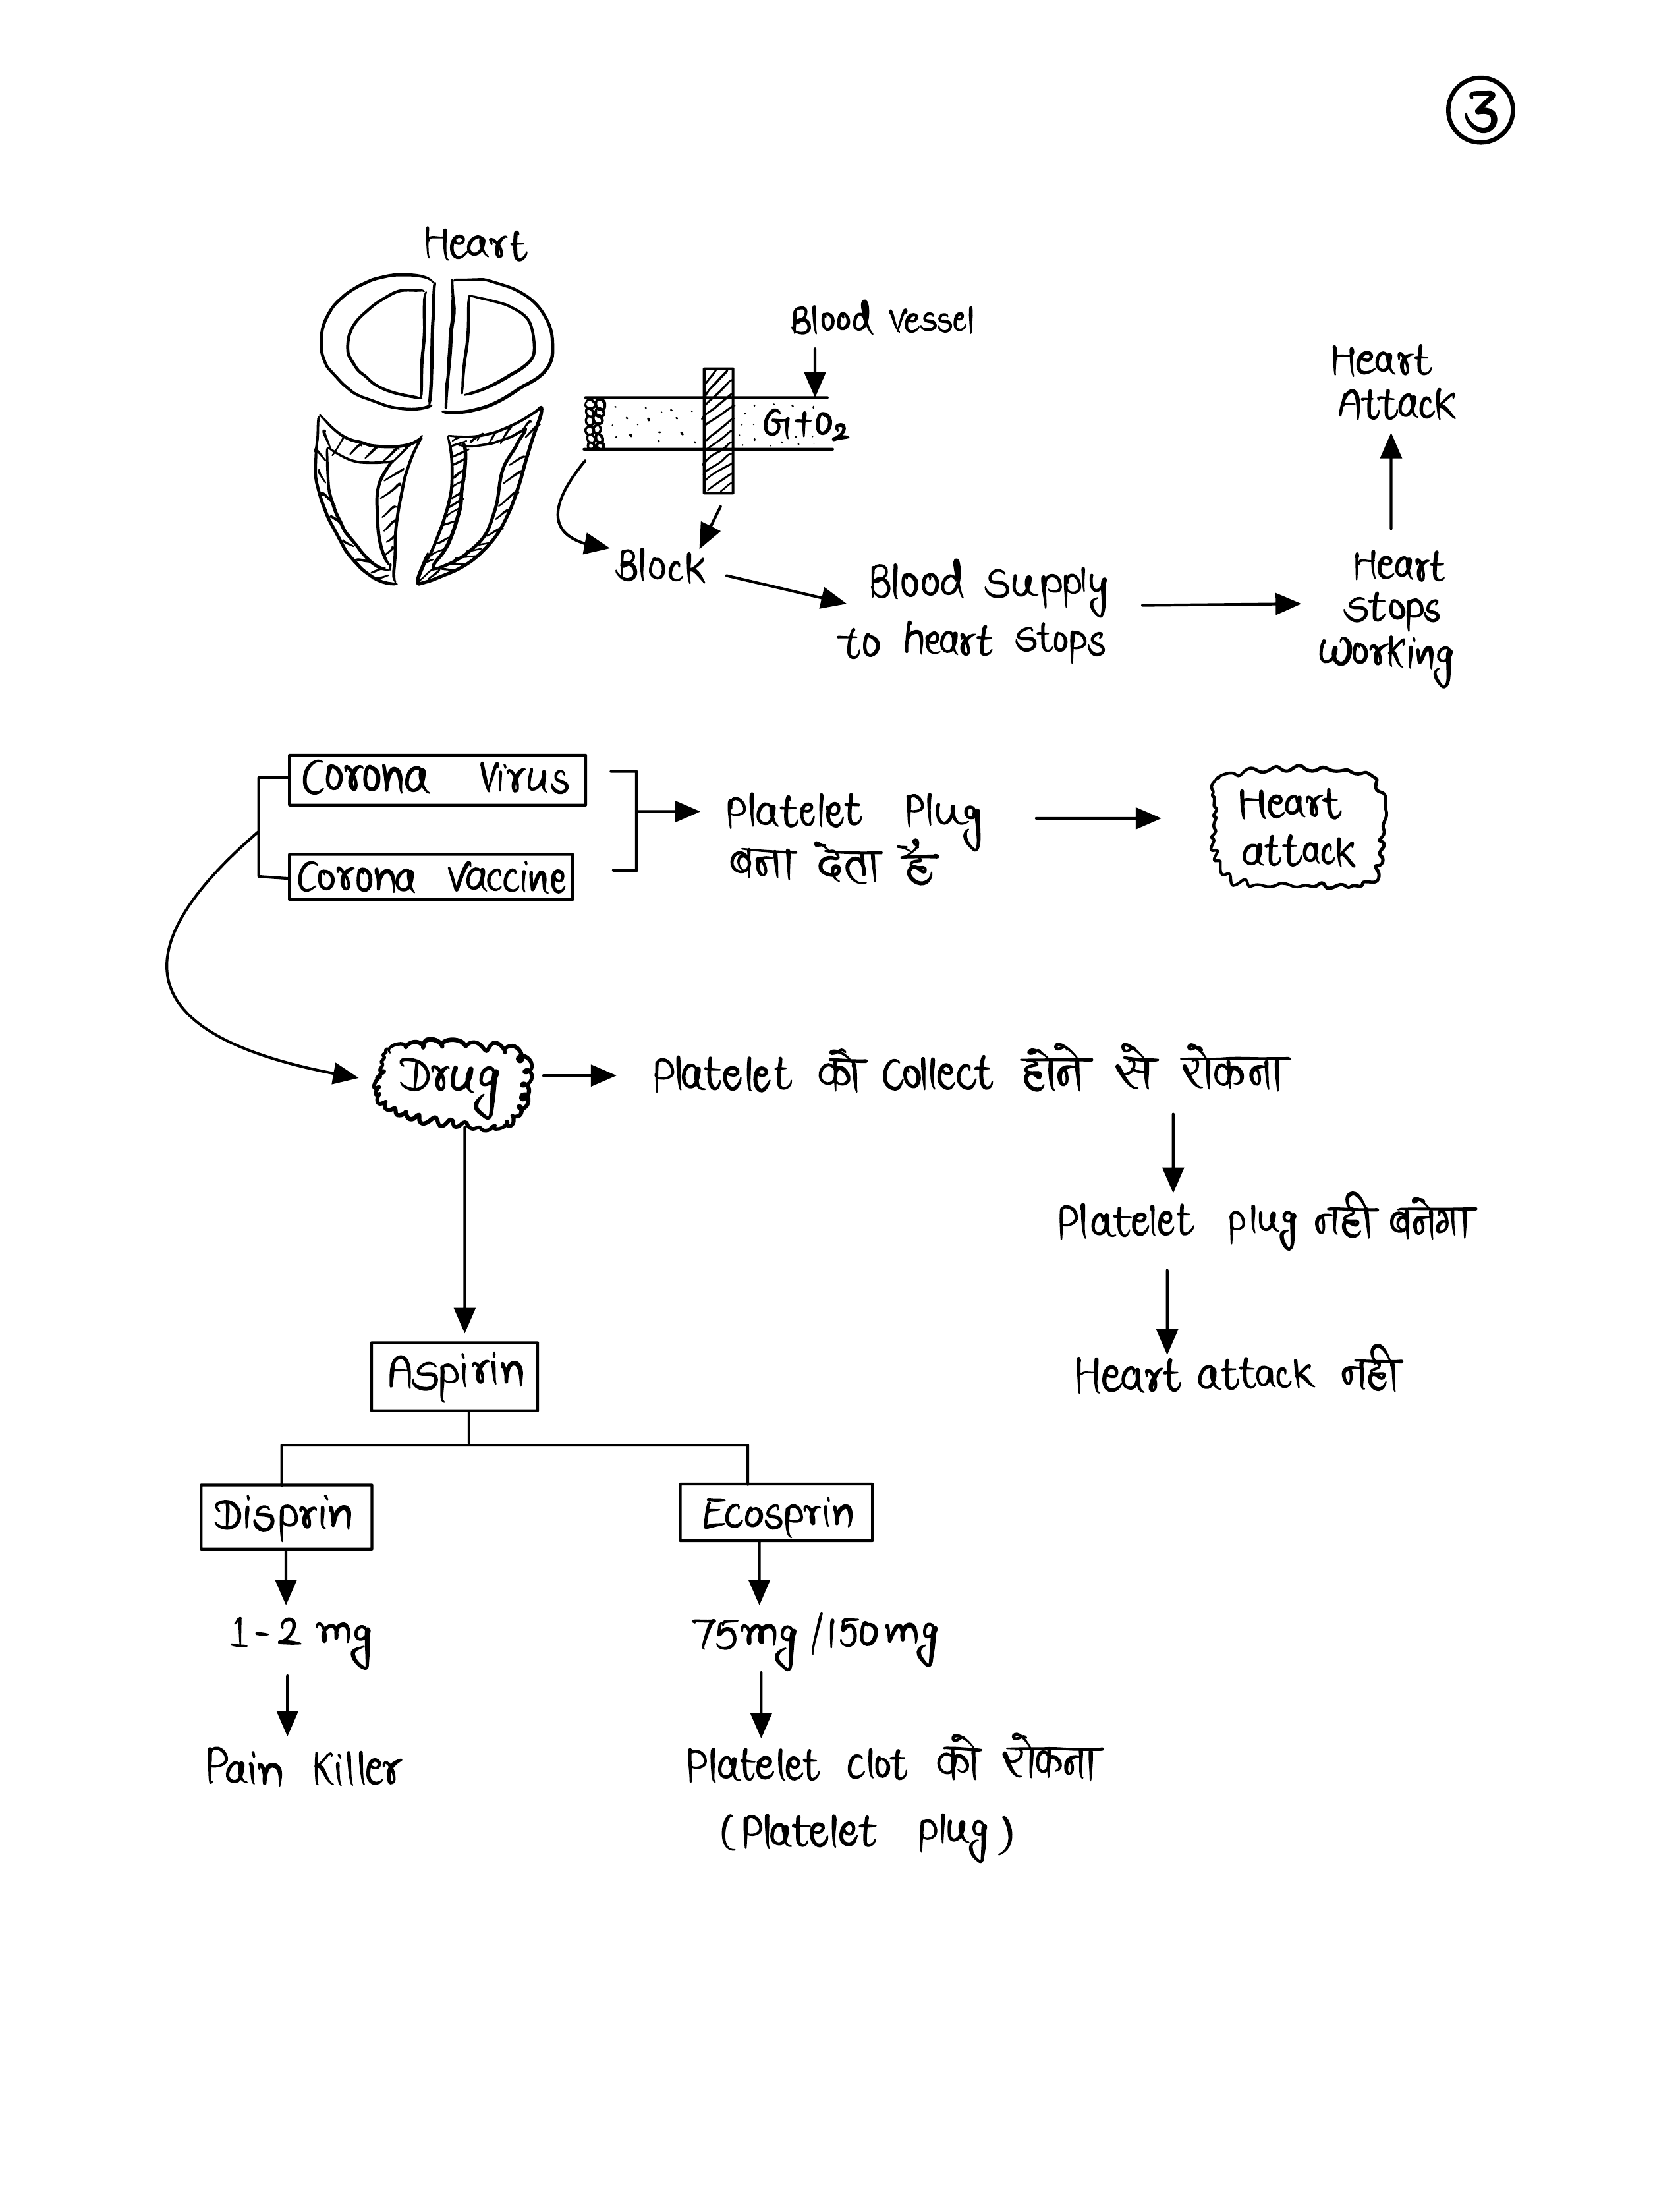 3
Heart
Blood Vessel
G+O2
Block
Blood Supply
to heart stops
Heart
stops
working
Heart
Attack
Corona Virus
Corona Vaccine
Platelet Plug
बना देता है
Heart
attack
Drug
Platelet को collect होने से रोकना
Platelet plug नही बनेगा
Heart attack नही
Aspirin
Disprin
Ecosprin
1-2 mg
75mg/150mg
Pain Killer
Platelet clot को रोकना
(Platelet plug)